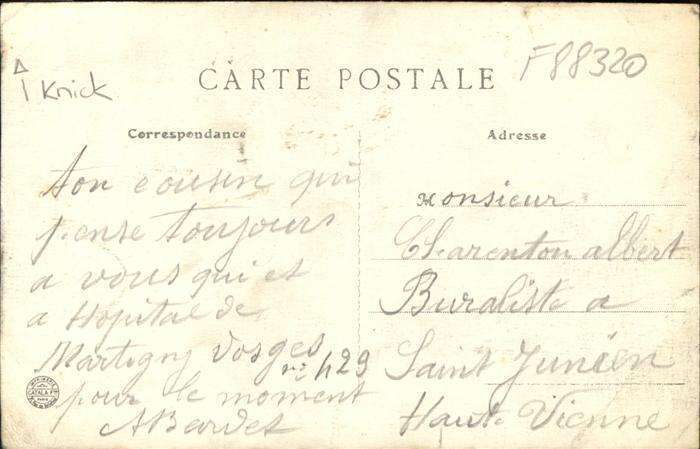 Knick
F88320
CARTE POSTALE
Correspondance
ton cousin qui
pense toujours
a vous qui et
a Hopital de
Martigny Vosges
n° 429
pour le moment
ABardet
Adresse
Monsieur
Charenton albert
Buraliste a
Saint Junien
Haute Vienne